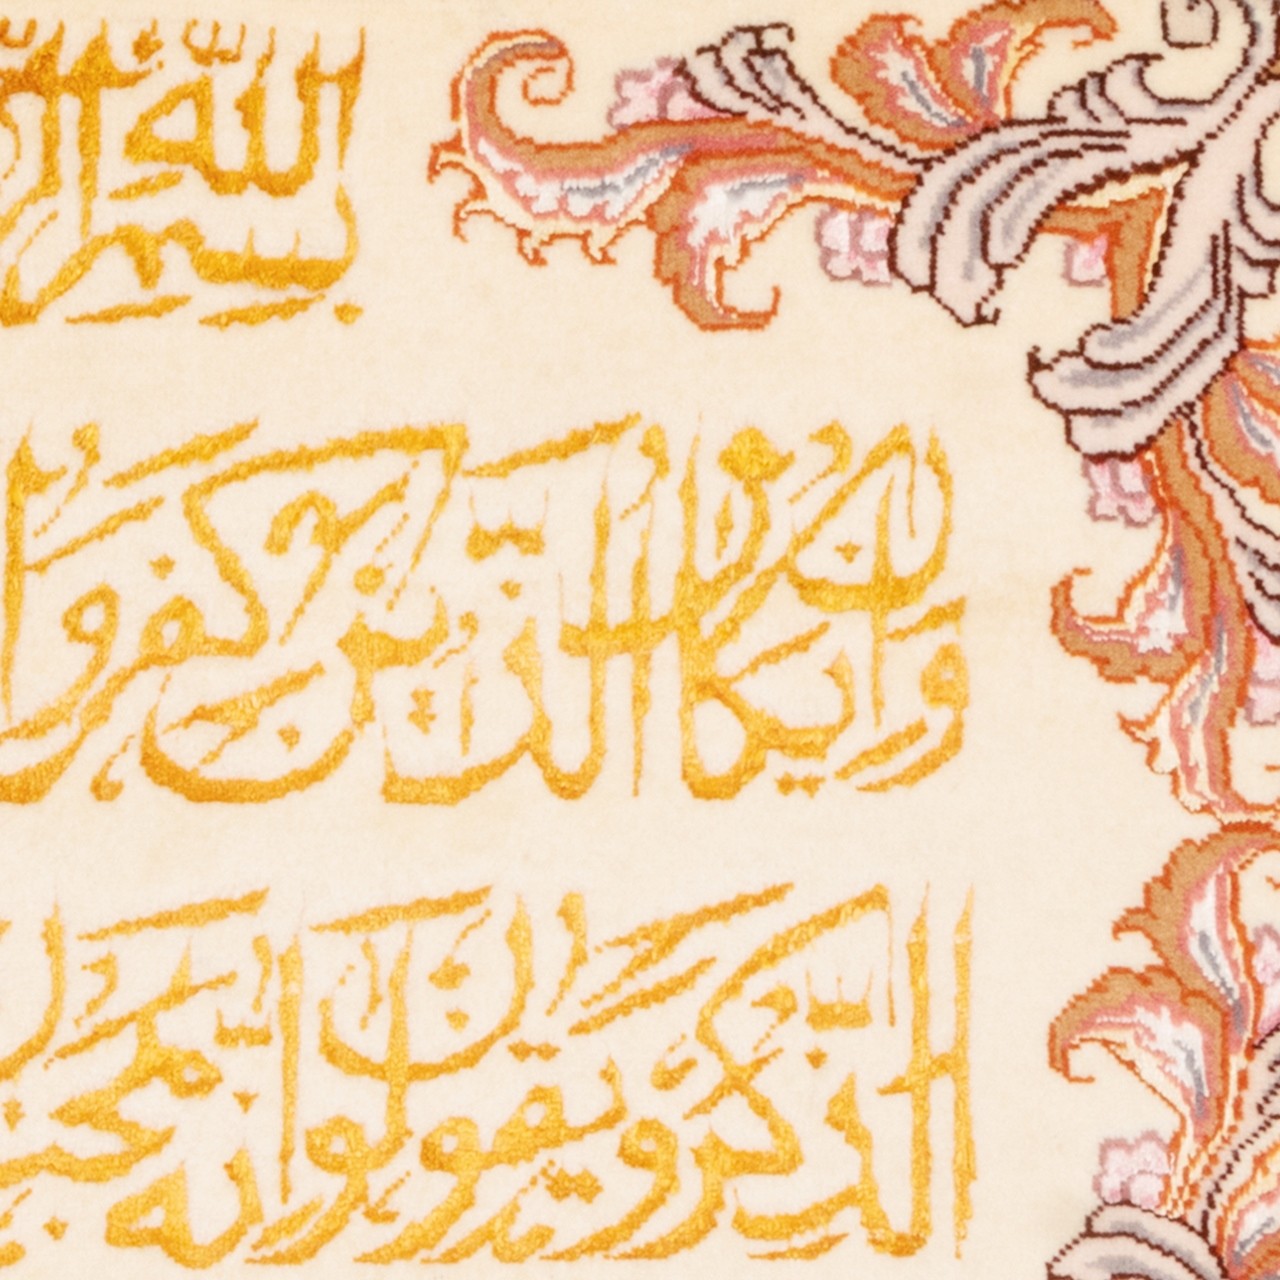 بِسْمِ اللَّهِ
وَإِن يَكَادُ الَّذِينَ كَفَرُوا
الذِّكْرَ وَيَقُولُونَ إِنَّهُ